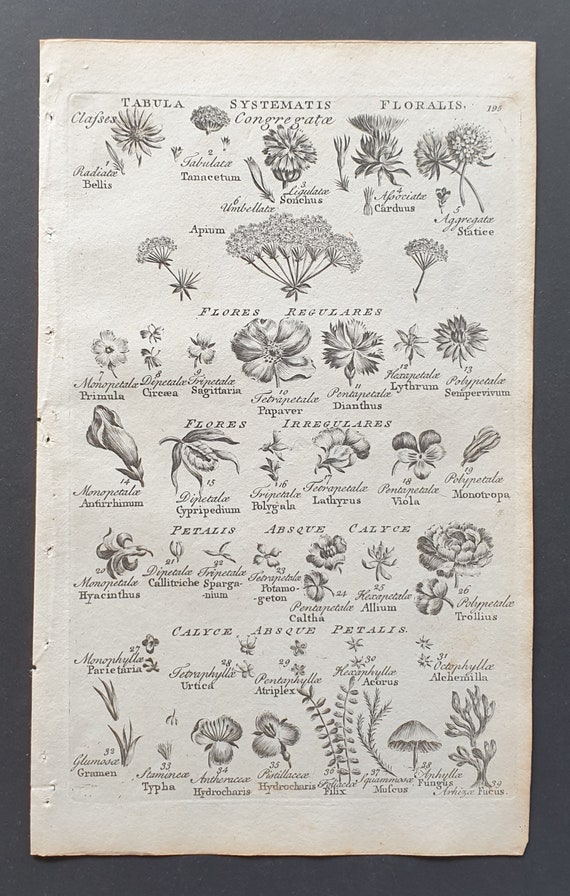 TABULA SYSTEMATIS FLORALIS. 195
Classes Congregatæ
1 Radiatæ Bellis
2 Tabulatæ Tanacetum
3 Ligulatæ Sonchus
4 Associatæ Carduus
5 Aggregatæ Statice
6 Umbellatæ Apium
FLORES REGULARES
7 Monopetalæ Primula
8 Dipetalæ Circæa
9 Tripetalæ Sagittaria
10 Tetrapetalæ Papaver
11 Pentapetalæ Dianthus
12 Hexapetalæ Lythrum
13 Polypetalæ Sempervivum
FLORES IRREGULARES
14 Monopetalæ Antirrhinum
15 Dipetalæ Cypripedium
16 Tripetalæ Polygala
17 Tetrapetalæ Lathyrus
18 Pentapetalæ Viola
19 Polypetalæ Monotropa
PETALIS ABSQUE CALYCE
20 Monopetalæ Hyacinthus
21 Dipetalæ Callitriche
22 Tripetalæ Sparga-
nium
23 Tetrapetalæ Potamo-
geton
24 Pentapetalæ Caltha
25 Hexapetalæ Allium
26 Polypetalæ Trollius
CALYCE ABSQUE PETALIS.
27 Monophyllæ Parietaria
28 Tetraphyllæ Urtica
29 Pentaphyllæ Atriplex
30 Hexaphyllæ Acorus
31 Octophyllæ Alchemilla
32 Glumosæ Gramen
33 Stamineæ Typha
34 Antheraceæ Hydrocharis
35 Pistillaceæ Hydrocharis
36 Foliaceæ Filix
37 Squammosæ Muscus
38 Aphyllæ Fungus
39 Arhizæ Fucus.